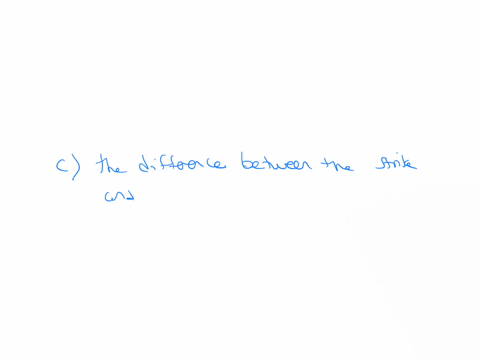 c) the difference between the strike
and